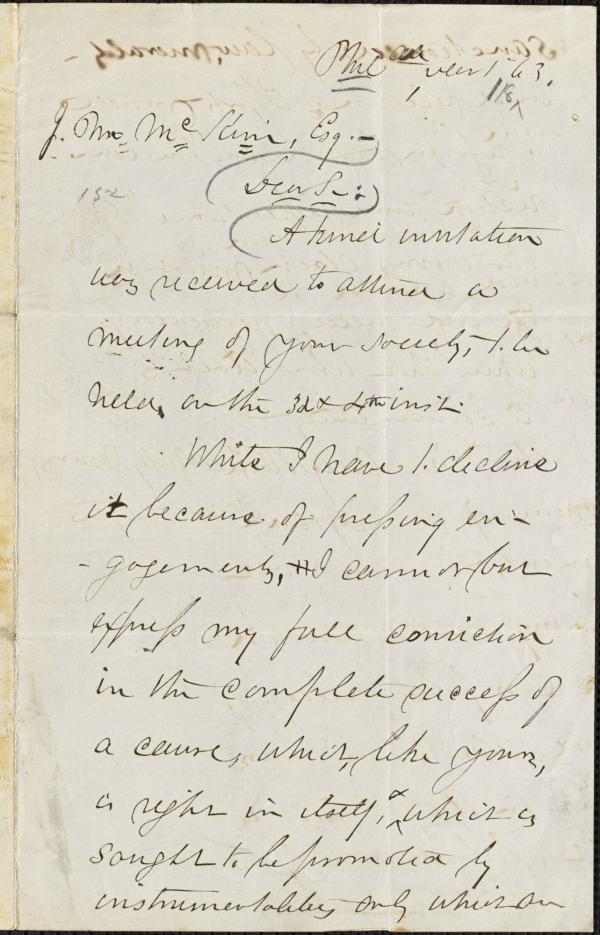 Phila Decr 1st 63.
118
J. M. McKim, Esq. -
152
Dear S - :
A kind invitation
was received to attend a
meeting of your society, to be
held, on the 3d & 4th inst.
While I have to decline
it because of preſsing en-
-gagements, I cannot but
expreſs my full conviction
in the complete succeſs of
a cause, which, like yours,
is right in itself, & which is
sought to be promoted by
instrumentalities only which are